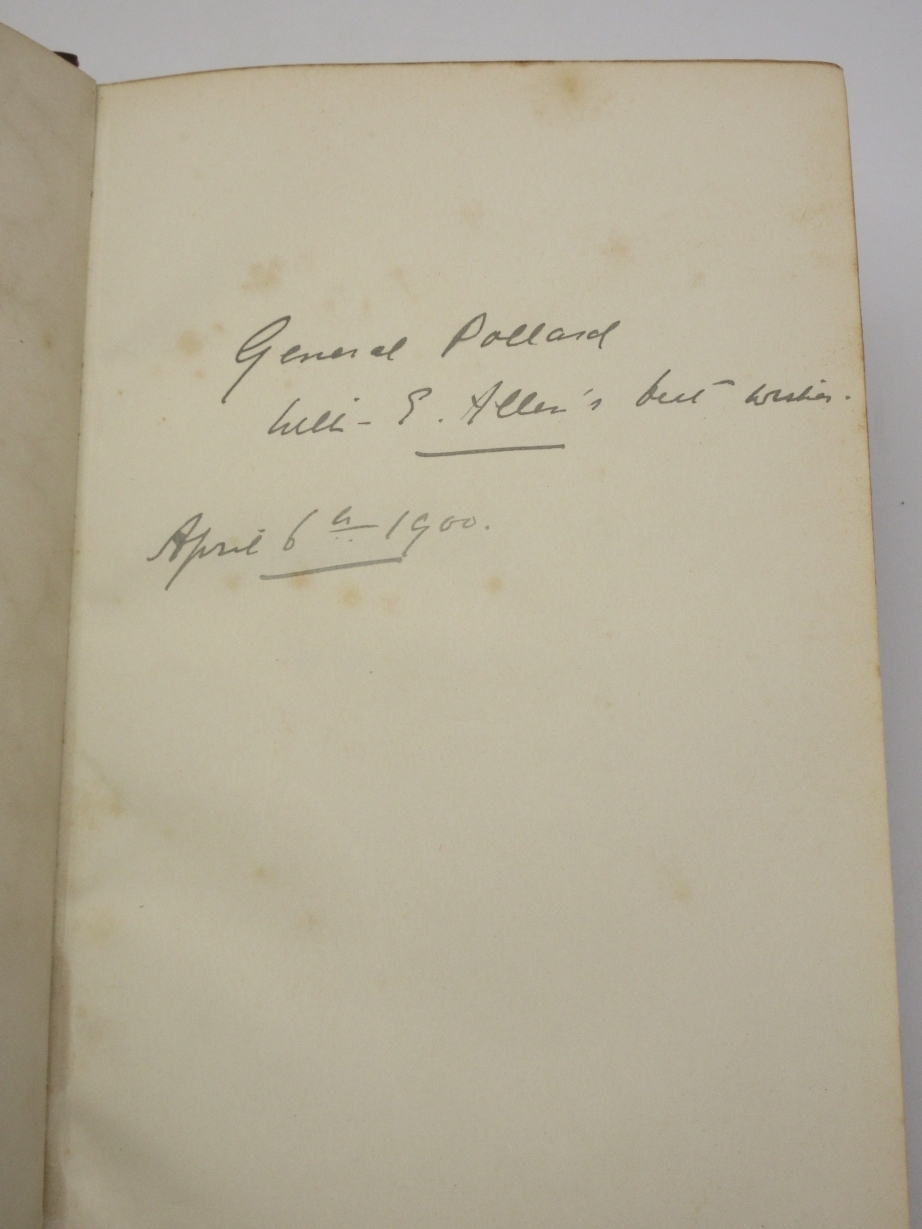 General Pollard
with E. Allen's best wishes.
April 6th 1900.